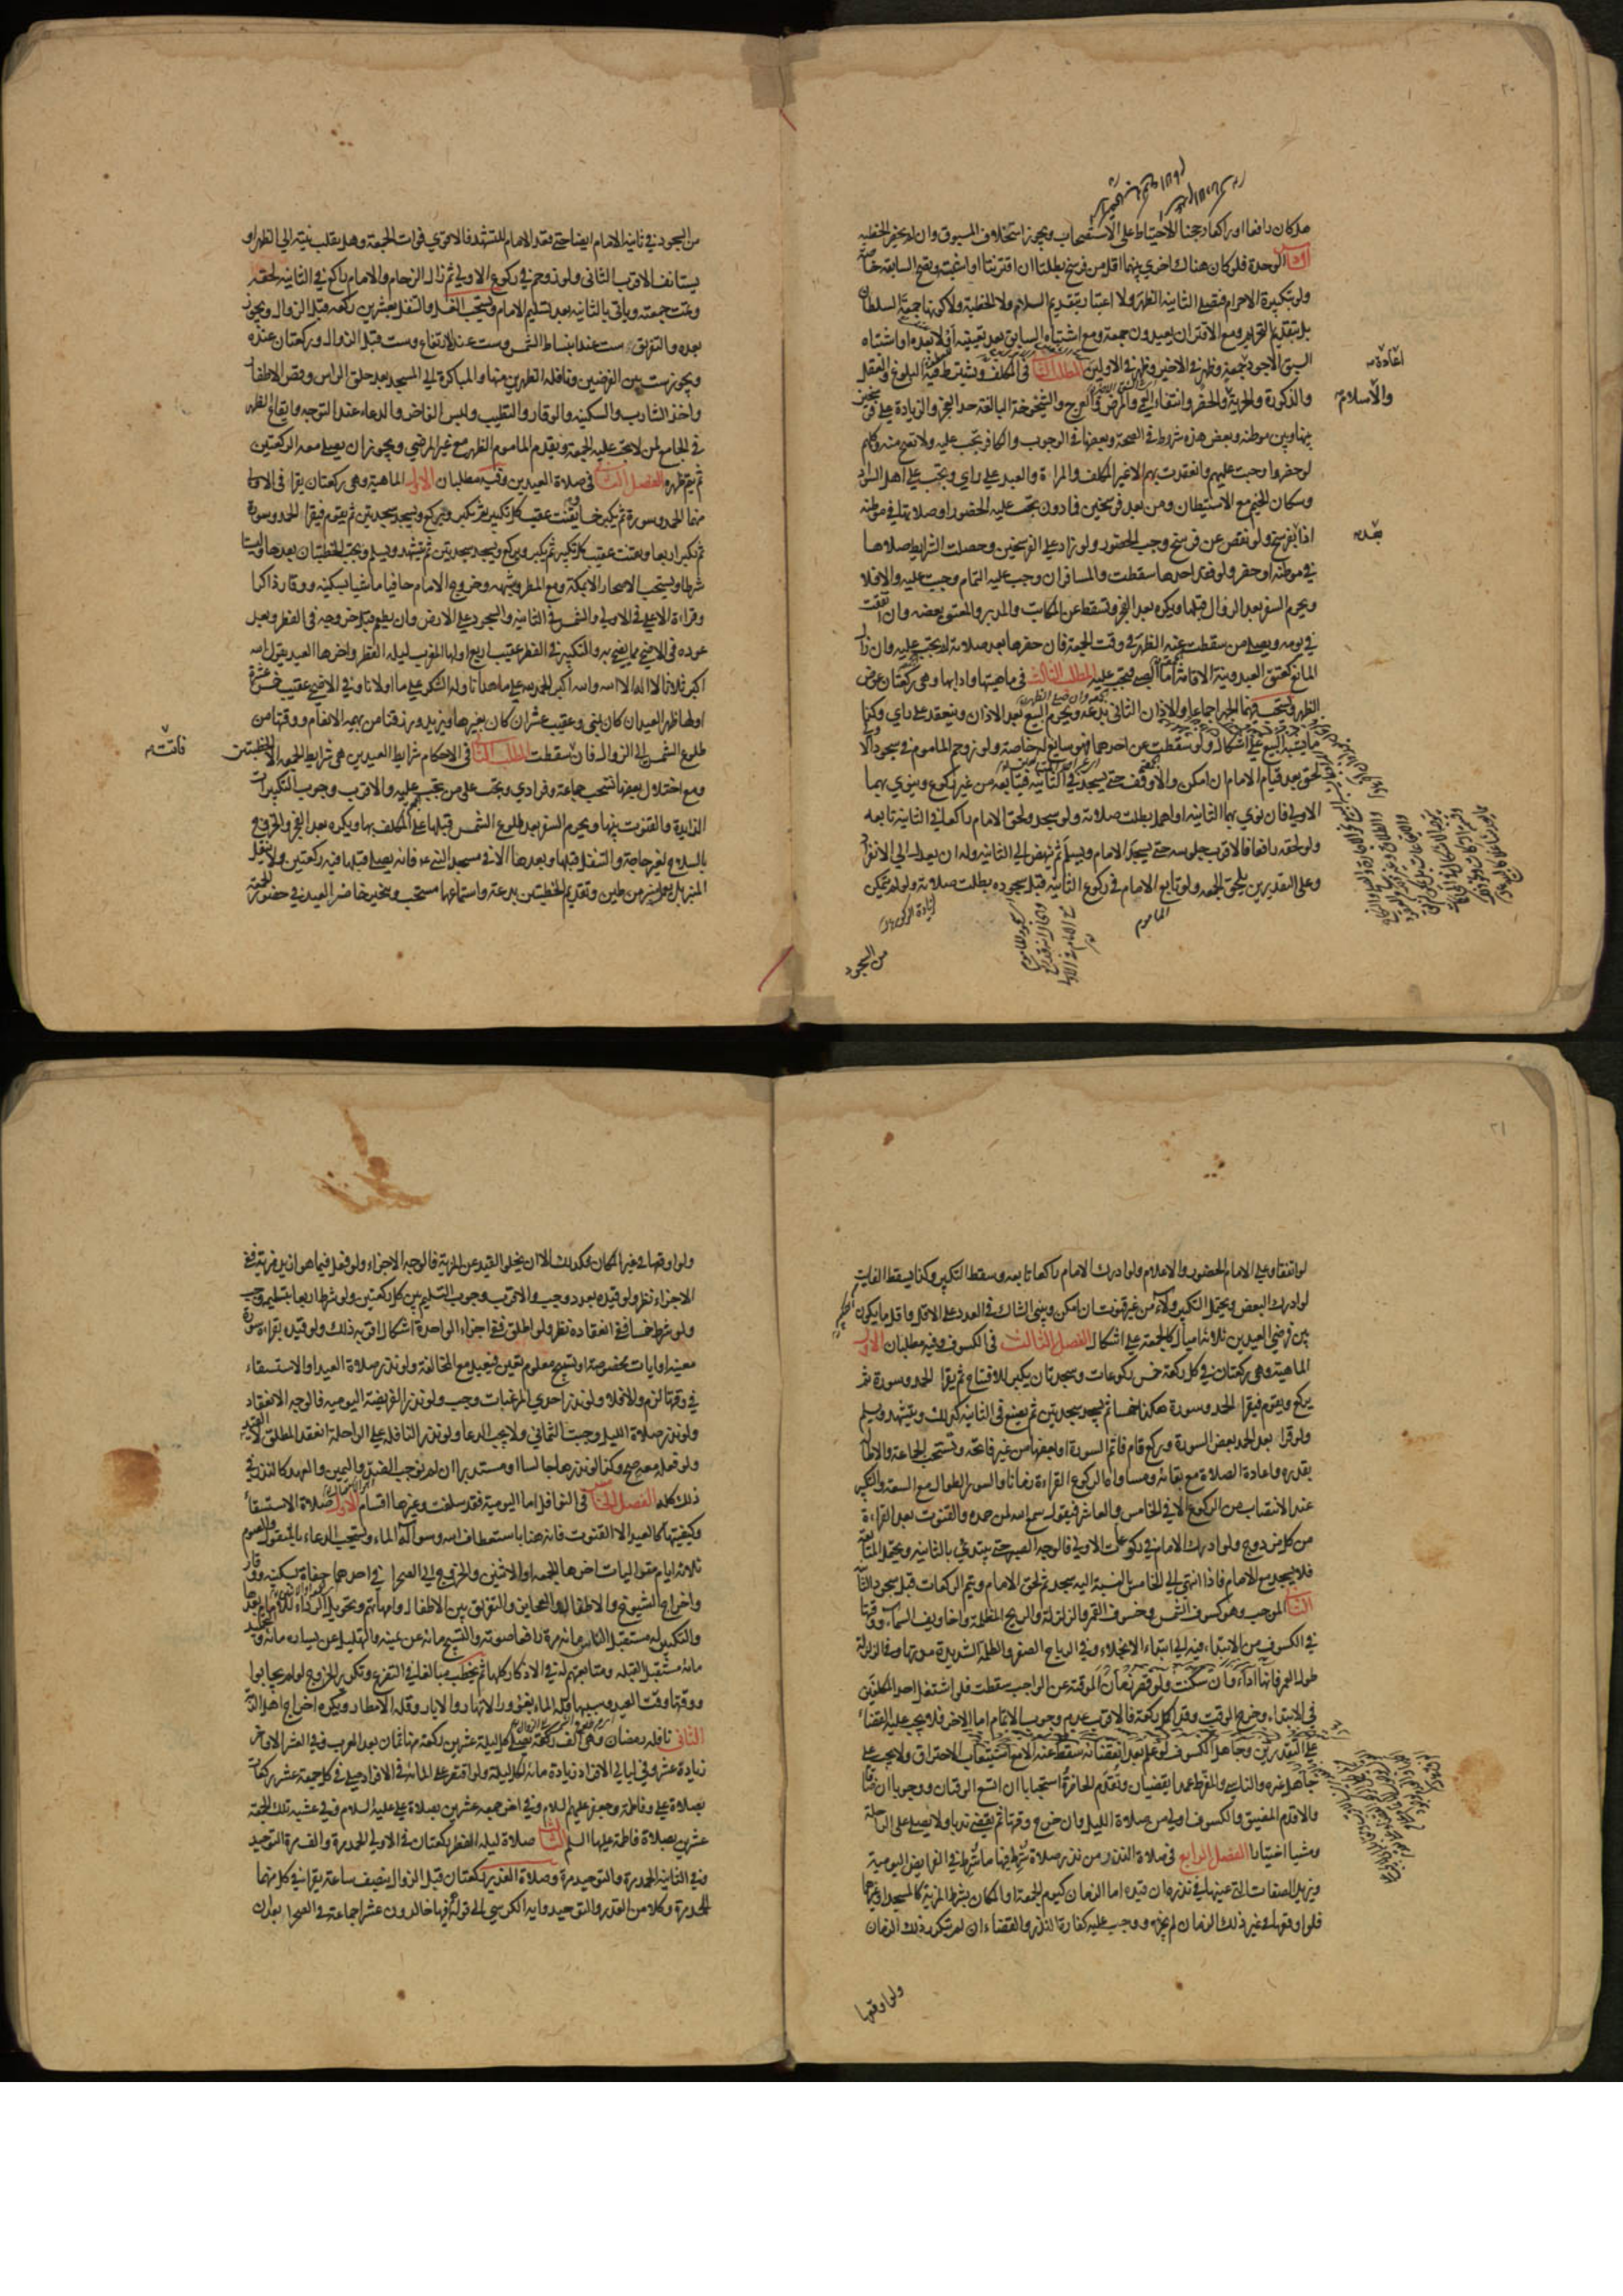 هل كان رافعا او راكعا رجحنا الاحتياط على الاستصحاب ويجوز استخلاف المسبوق وان لم يحضر الخطبة
الوحدة فلو كان هناك اخرى بينهما اقل من فرسخ بطلتا ان اقترنتا او اشتبه وتصح السابقة خاصة
ولو بتكبيرة الاحرام فيصلي الثانية الظهر ولا اعتبار بتقديم السلام ولا الخطبة ولا كونها جمعة السلطان
بل بتقديم التحريم ومع الاقتران يعيدون جمعة ومع اشتباه السابق بعد تعينه او لا بعده او اشتباه
السبق الاجود جمعة وظهر في الاخير وظهر في الاولين المطلب الثاني في المكلف ويشترط فيه البلوغ والعقل
اعادة
والاسلام
والذكورة والحرية والحضر وانتفاء العمى والمرض والعرج والشيخوخة البالغة حد العجز والزيادة على فرسخين
بينها وبين موطنه وبعض هذه شروط في الصحة وبعضها في الوجوب والكافر تجب عليه ولا تصح منه وكلهم
لو حضروا وجبت عليهم وانعقدت بهم الا غير المكلف والمراة والعبد على راي وتجب على اهل السواد
وسكان الخيم مع الاستيطان ومن بعد فرسخين فما دون يجب عليه الحضور او صلاتها في موطنه
اذا بعد بفرسخ ولو نقص عن فرسخ وجب الحضور ولو زاد على الفرسخين وحصلت الشرايط صلاها
في موطنه او حضر ولو فقد احدها سقطت والمسافر ان وجب عليه التمام وجبت عليه والا فلا
ويحرم السفر بعد الزوال قبلها ويكره بعد الفجر وتسقط عن المكاتب والمدبر والمعتق بعضه وان اتفقت
في يومه ويصلي من سقطت عنه الظهر في وقت الجمعة فان حضرها بعد صلاته لم تجب عليه وان زال
المانع كعتق العبد ونية الاقامة اما الصبي فتجب عليه المطلب الثالث في ماهيتها وادابها وهي ركعتان عوض
الظهر ويستحب فيهما الجهر اجماعا والاذان الثاني بدعة ويحرم البيع بعد الاذان وينعقد على راي وكذا
ما يشبه البيع على اشكال ولو سقطت عن احدهما فهو سايغ له خاصة ولو زوحم الماموم في سجود الاولى
لحق بعد قيام الامام ان امكن والا وقف حتى يسجد في الثانية فيتابعه من غير ركوع وينوي بهما
الاولى فان نوى بهما الثانية او اهمل بطلت صلاته ولو سجد ولحق الامام راكعا في الثانية تابعه
ولو لحقه رافعا فالاقرب جلوسه حتى يسجد الامام ويسلم ثم ينهض الى الثانية وله ان يعدل الى الانفراد
وعلى التقديرين يلحق الجمعة ولو تابع الامام في ركوع الثانية قبل سجوده بطلت صلاته ولو لم يتمكن
الماموم
من السجود
من السجود في ثانية الامام ايضا حتى قعد الامام للتشهد فالاقوى فوات الجمعة وهل يقلب نيته الى الظهر او
يستانف الاقرب الثاني ولو زوحم في ركوع الاولى ثم زال الزحام والامام راكع في الثانية لحقه
وتمت جمعته وياتي بالثانية بعد تسليم الامام ويستحب الغسل والتنفل بعشرين ركعة قبل الزوال ويجوز
بعده والتفريق ست عند انبساط الشمس وست عند الارتفاع وست قبل الزوال وركعتان عنده
ويجوز ست بين الفرضين ونافلة الظهرين منها والمباكرة الى المسجد بعد حلق الراس وقص الاظفار
واخذ الشارب والسكينة والوقار والتطيب ولبس الفاخر والدعاء عند التوجه وايقاع الظهر
في الجامع لمن لا تجب عليه الجمعة ويقدم الماموم الظهر مع غير المرضي ويجوز ان يصلي معه الركعتين
ثم يتم ظهره الفصل الثاني في صلاة العيدين وفيه مطلبان الاول الماهية وهي ركعتان يقرا في الاولى
منهما الحمد وسورة ثم يكبر خمسا ويقنت عقيب كل تكبيرة ثم يكبر ويركع ويسجد سجدتين ثم يقوم فيقرا الحمد وسورة
ثم يكبر اربعا ويقنت عقيب كل تكبيرة ثم يكبر ويركع ويسجد سجدتين ثم يتشهد ويسلم وتجب الخطبتان بعدها وليستا
شرطا ويستحب الاصحار الا بمكة ومع المطر وشبهه وخروج الامام حافيا ماشيا بسكينة ووقار ذاكرا
وقراءة الاعلى في الاولى والشمس في الثانية والسجود على الارض وان يطعم قبل خروجه في الفطر وبعد
عوده في الاضحى مما يضحي به والتكبير في الفطر عقيب اربع اولها المغرب ليلة الفطر واخرها العيد يقول الله
اكبر ثلاثا لا اله الا الله والله اكبر الحمد لله على ما هدانا وله الشكر على ما اولانا وفي الاضحى عقيب خمس عشرة
اولها ظهر العيد ان كان بمنى وعقيب عشر ان كان بغيرها ويزيد ورزقنا من بهيمة الانعام ووقتها من
طلوع الشمس الى الزوال فان سقطت المطلب الثاني في الاحكام شرايط العيدين هي شرايط الجمعة الا الخطبتين
فاتت
ومع اختلال بعضها تستحب جماعة وفرادى وتجب على من تجب عليه والاقرب وجوب التكبيرات
الزايدة والقنوت بينها ويحرم السفر بعد طلوع الشمس قبلها على المكلف بها ويكره بعد الفجر والخروج
بالسلاح لغير حاجة والتنفل قبلها وبعدها الا في مسجد النبي ع فانه يصلي قبلها فيه ركعتين ولا ينقل
المنبر بل يعمل منبر من طين وتقديم الخطبتين بدعة واستماعهما مستحب ويتخير حاضر العيد في حضور الجمعة
لو اتفقا وعلى الامام الحضور والاعلام ولو ادرك الامام راكعا تابعه وسقط التكبير وكذا يسقط الفايت
لو ادرك البعض ويحتمل التكبير ولاء من غير قنوت ان امكن ويبني الشاك في العدد على الاقل واقل ما يكون
بين فرضي العيدين ثلاثة اميال كالجمعة على اشكال الفصل الثالث في الكسوف وفيه مطلبان الاول
الماهية وهي ركعتان في كل ركعة خمس ركوعات وسجدتان يكبر للافتتاح ثم يقرا الحمد وسورة ثم
يركع ويقوم فيقرا الحمد وسورة هكذا خمسا ثم يسجد سجدتين ثم يصنع في الثانية كذلك ويتشهد ويسلم
ولو قرا بعد الحمد بعض السورة وركع قام فاتم السورة او بعضها من غير فاتحة وتستحب الجماعة والاطالة
بقدره واعادة الصلاة مع بقائه ومساواة الركوع القراءة زمانا والسور الطوال مع السعة والتكبير
عند الانتصاب من الركوع الا في الخامس والعاشر فيقول سمع الله لمن حمده والقنوت بعد القراءة
من كل مزدوج ولو ادرك الامام في ركوعات الاولى فالوجه الصبر حتى يبتدئ بالثانية ويحتمل المتابعة
فلا يسجد مع الامام فاذا انتهى الى الخامس بالنسبة اليه سجد ثم لحق الامام ويتم الركعات قبل سجود الثانية
الثاني الموجب وهو كسوف الشمس وخسوف القمر والزلزلة والريح المظلمة واخاويف السماء ووقتها
في الكسوف من الابتداء فيه الى ابتداء الانجلاء وفي الرياح الصفر والظلمة الشديدة مدتها وفي الزلزلة
طول العمر فانها اداء وان سكنت ولو قصر زمان الموقتة عن الواجب سقطت فلو اشتغل احد المكلفين
في الابتداء وخرج الوقت وقد اكمل ركعة فالاقرب عدم وجوب الاتمام اما الاخر فلا يجب عليه القضاء
على التقديرين وجاهل الكسوف لو علم بعد انقضائه سقط عنه الا مع استيعاب الاحتراق ولا يجب على
جاهل غيره والناسي والمفرط عمدا يقضيان وتقدم الحاضرة استحبابا ان اتسع الوقتان ووجوبا ان ضاقا
والا قدم المضيق والكسوف اولى من صلاة الليل وان خرج وقتها ثم يقضى ندبا ولا يصلى على الراحلة
ومشيا اختيارا الفصل الرابع في صلاة النذر من نذر صلاة شرط فيها ما شرط في الفرايض اليومية
ويزيد الصفات التي عينها في نذره ان قيده اما الزمان كيوم الجمعة او المكان بشرط المزية كالمسجد او غيرهما
فلو اوقعها في غير ذلك الزمان لم يجزه ووجب عليه كفارة النذر والقضاء ان لم يتكرر ذلك الزمان
ولو اوقعها
ولو اوقعها في غير المكان فكذلك الا ان يخلو القيد عن المزية فالوجه الاجزاء ولو فعل فيما هو ازيد مزية ففي
الاجزاء نظر ولو قيده بعدد وجب والاقرب وجوب التسليم بين كل ركعتين ولو شرط اربعا بتسليمة وجب
ولو شرط خمسا ففي انعقاده نظر ولو اطلق ففي اجزاء الواحدة اشكال اقربه ذلك ولو قيده بقراءة سورة
معينة او ايات مخصوصة او تسبيح معلوم تعين فيعيد مع المخالفة ولو نذر صلاة العيد او الاستسقاء
في وقتها لزم والا فلا ولو نذر احدى المرغبات وجب ولو نذر الفريضة اليومية فالوجه الانعقاد
ولو نذر صلاة الليل وجبت الثماني ولا يجب الدعاء ولو نذر النافلة على الراحلة انعقد المطلق لا القيد
ولو فعله معه صح وكذا لو نذرها جالسا او مستدبرا ان لم نوجب الضد واليمين والعهد كالنذر في
ذلك كله الفصل الخامس في النوافل اما اليومية فقد سلفت وغيرها اقسام الاول صلاة الاستسقاء
وكيفيتها كالعيد الا القنوت فانه هنا باستعطاف الله وسؤاله الماء ويستحب الدعاء بالمنقول والصوم
ثلاثة ايام متواليات اخرها الجمعة او الاثنين والخروج الى الصحراء في احدهما حفاة بسكينة ووقار
واخراج الشيوخ والاطفال والعجايز والتفريق بين الاطفال وامهاتهم وتحويل الرداء للامام بعدها
والتكبير له مستقبل القبلة مائة مرة رافعا صوته والتسبيح مائة عن يمينه والتهليل عن يساره مائة والتحميد
مائة مستقبل القبلة ومتابعتهم له في الاذكار كلها ثم يخطب مبالغا في التضرع وتكرير الخروج لو لم يجابوا
ووقتها وقت العيد وسببها قلة الماء بغور الانهار والابار وقلة الامطار ويكره اخراج اهل الذمة
الثاني نافلة رمضان وهي الف ركعة يصلي كل ليلة عشرين ركعة منها ثمان بعد المغرب وفي العشر الاواخر
زيادة عشر وفي ليالي الافراد زيادة مائة لكل ليلة ولو اقتصر على المائة في الافراد صلى في كل جمعة عشر ركعات
بصلاة علي وفاطمة وجعفر عليهم السلام وفي اخر جمعة عشرين بصلاة علي عليه السلام وفي عشية تلك الجمعة
عشرين بصلاة فاطمة عليها السلم الثالث صلاة ليلة الفطر ركعتان في الاولى الحمد مرة والف مرة التوحيد
وفي الثانية الحمد مرة والتوحيد مرة وصلاة الغدير ركعتان قبل الزوال بنصف ساعة يقرا في كل منهما
الحمد مرة وكلا من القدر والتوحيد واية الكرسي الى قوله هم فيها خالدون عشرا جماعة في الصحراء بعد ان